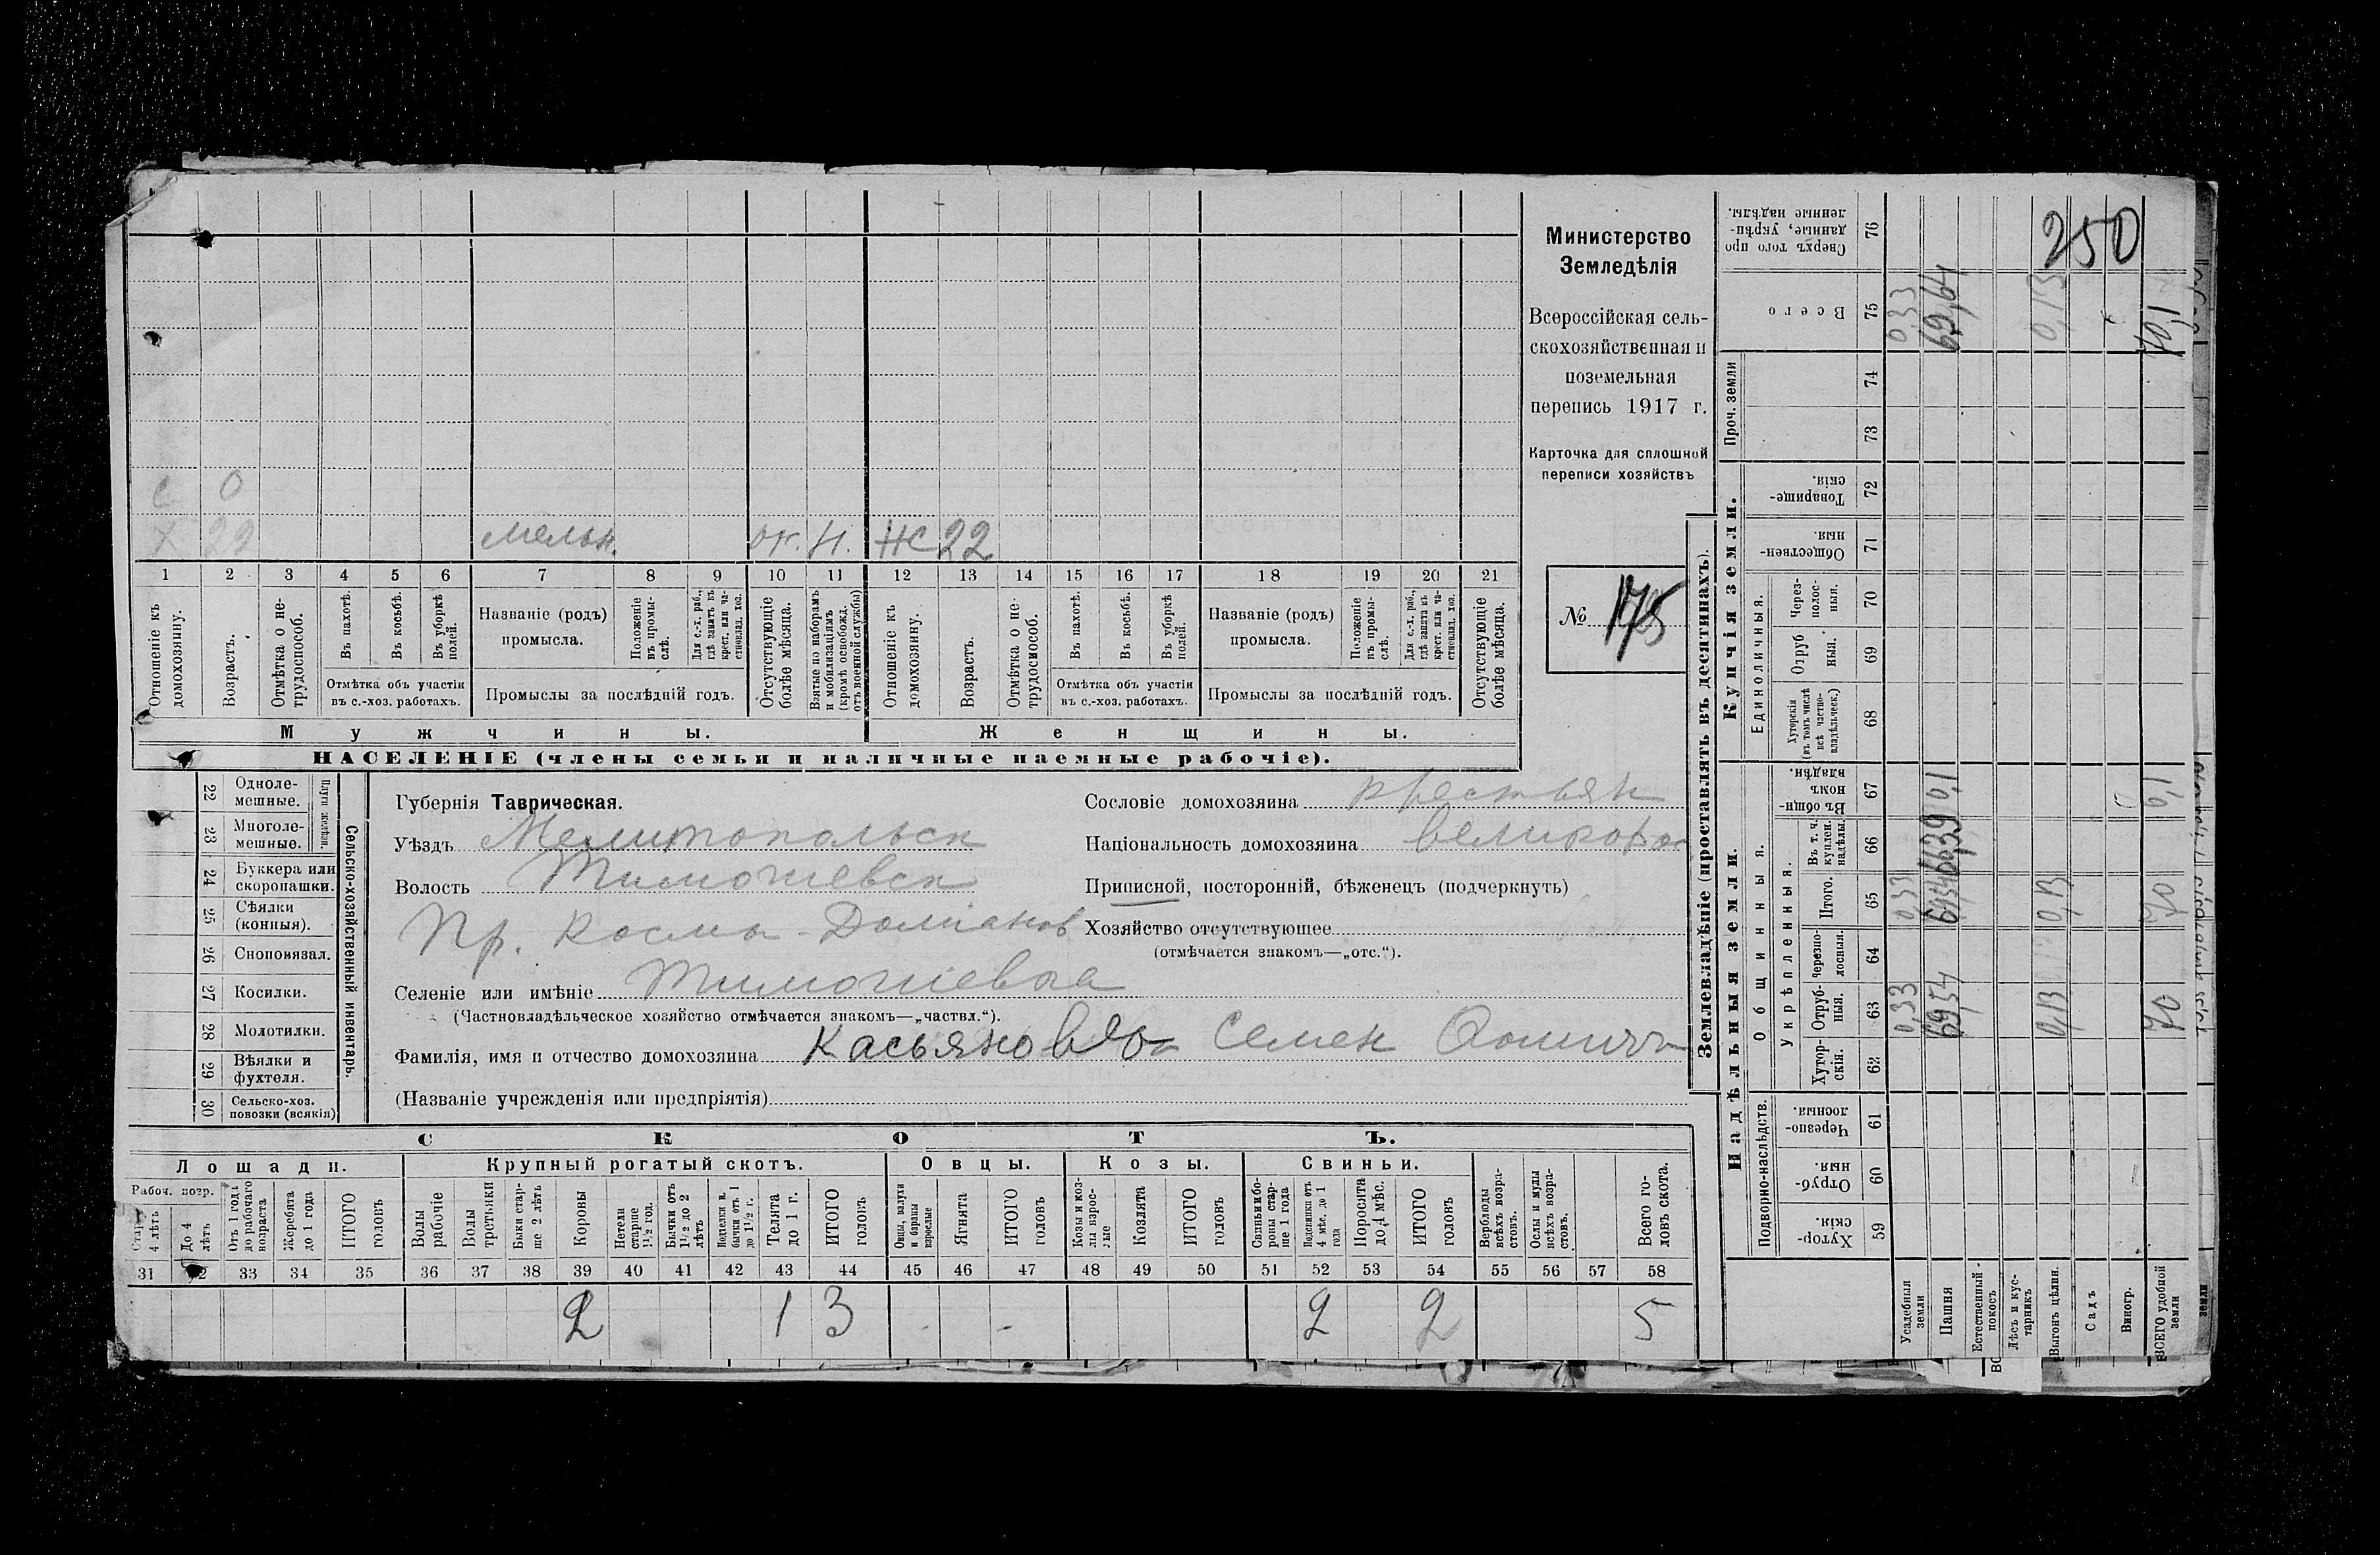 Министерство
Земледѣлія
Всероссійская сель-
скохозяйственная и
поземельная
перепись 1917 г.
Карточка для сплошной
переписи хозяйствъ
№ 175
250
С 0
Х 22 мельн. от. Н. ЖС 22
1 2 3 4 5 6 7 8 9 10 11 12 13 14 15 16 17 18 19 20 21
Отношеніе къ домохозяину.
Возрастъ.
Отмѣтка о не-трудоспособ.
Въ пахотѣ.
Въ косьбѣ.
Въ уборкѣ полей.
Отмѣтка объ участіи
въ с.-хоз. работахъ.
Названіе (родъ)
промысла.
Положеніе въ промы-слѣ.
Для с.-х. раб., гдѣ занятъ въ крест. или ча-стновлад. хоз.
Промыслы за послѣдній годъ.
Отсутствующіе болѣе мѣсяца.
Взятые по наборамъ и мобилизаціямъ (кромѣ освобожд. отъ военной службы)
Отношеніе къ домохозяину.
Возрастъ.
Отмѣтка о не-трудоспособ.
Въ пахотѣ.
Въ косьбѣ.
Въ уборкѣ полей.
Отмѣтка объ участіи
въ с.-хоз. работахъ.
Названіе (родъ)
промысла.
Положеніе въ промы-слѣ.
Для с.-х. раб., гдѣ занята въ крест. или ча-стновлад. хоз.
Промыслы за послѣдній годъ.
Отсутствующіе болѣе мѣсяца.
Мужчины.
Женщины.
НАСЕЛЕНІЕ (члены семьи и наличные наемные рабочіе).
Сельско-хозяйственный инвентарь.
Плуги желѣзн.
22 Одноле-мешные.
23 Многоле-мешные.
24 Буккера или скоропашки.
25 Сѣялки (конныя).
26 Сноповязал.
27 Косилки.
28 Молотилки.
29 Вѣялки и фухтеля.
30 Сельско-хоз. повозки (всякія)
Губернія Таврическая.
Уѣздъ Мелитопольск
Волость Тимошевск
Пр. Косма-Домианов
Селеніе или имѣніе Тимошевка
(Частновладѣльческое хозяйство отмѣчается знакомъ—„частвл.“).
Фамилія, имя и отчество домохозяина Касьянов Семен
(Названіе учрежденія или предпріятія)
Сословіе домохозяина крестьян
Національность домохозяина великорос
Приписной, посторонній, бѣженецъ (подчеркнуть)
Хозяйство отсутствующее
(отмѣчается знакомъ—„отс.“).
СКОТЪ.
Лошади.
Крупный рогатый скотъ.
Овцы.
Козы.
Свиньи.
Рабоч. возр.
4 лѣтъ
До 4 лѣтъ
Отъ 1 года до рабочаго возраста
Жеребята до 1 года
ИТОГО головъ
Волы рабочіе
Волы третьяки
Быки стар-ше 2 лѣтъ
Коровы
Нетели старше 1½ год.
Бычки отъ 1½ до 2 лѣтъ
бычки отъ 1 до 1½ г.
Телята до 1 г.
ИТОГО головъ
Овцы, валухи и бараны взрослые
Ягнята
ИТОГО головъ
Козы и коз-лы взрос-лые
Козлята
ИТОГО головъ
Свиньи и бо-ровы стар-ше 1 года
Подсвинки отъ 4 мѣс. до 1 года
Поросята до 4 мѣс.
ИТОГО головъ
Верблюды всѣхъ возра-стовъ.
Ослы и мулы всѣхъ возра-стовъ.
Всего го-ловъ скота.
31 32 33 34 35 36 37 38 39 40 41 42 43 44 45 46 47 48 49 50 51 52 53 54 55 56 57 58
2 1 3 2 2 5
Землевладѣніе (проставлять въ десятинахъ).
Купчія земли.
Проч. земли
Единоличныя.
Надѣльныя земли.
Общинныя.
Укрѣпленныя.
Подворно-наслѣдств.
Сверхъ того про данные, укрѣп-ленные надѣлы. 76
Всего 75
74
73
Товарище-скія. 72
Обществен-ныя. 71
Через-полос-ныя. 70
Отруб ныя. 69
Хуторскія (въ томъ числѣ всѣ частно-владѣльческ.) 68
Въ общин-номъ владѣн. 67
Въ т. ч. куплен. надѣлы. 66
Итого. 65
Черезпо-лосныя. 64
Отруб-ныя. 63
Хутор-скія. 62
Черезпо-лосныя. 61
Отруб-ныя. 60
Хутор-скія. 59
Усадебныя земли
Пашня
Естественный покосъ
Лѣсъ и кус-тарникъ
Выгонъ цѣлин.
Садъ
Виногр.
ВСЕГО удобной земли
0,33 0,33 0,33
69,54 69,54 0,1 69,64
0,13 0,13 0,13
70 70 0,1 70,1